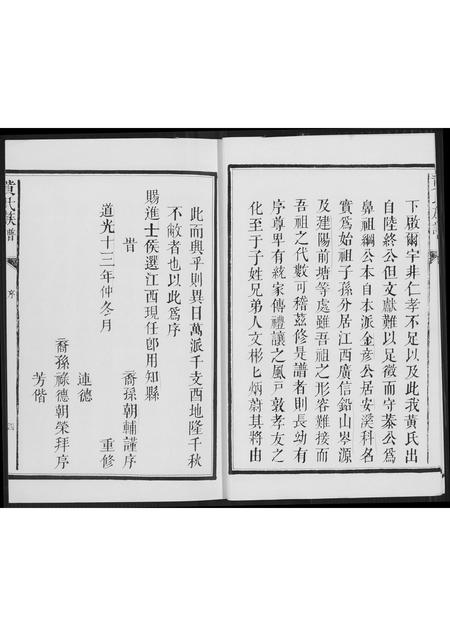 下啟爾宇非仁孝不足以及此我黃氏出
自陸終公但文獻難以足徵而守泰公爲
鼻祖綱公本自本派金彥公居安溪科名
實爲始祖子孫分居江西廣信鉛山岑源
及建陽前塘等處雖吾祖之形容難接而
吾祖之代數可稽茲修是譜者則長幼有
序尊卑有統家傳禮讓之風戸敦孝友之
化至于子姓兄弟人文彬匕炳蔚其將由
黃氏族譜
序
此而興乎則異日萬派千支酉地隆千秋
不敝者也以此爲序
賜進士侯選江西現任卽用知縣
裔孫朝輔謹序
道光十三年仲冬月
重修
連德
裔孫祿德朝榮拜序
芳偕